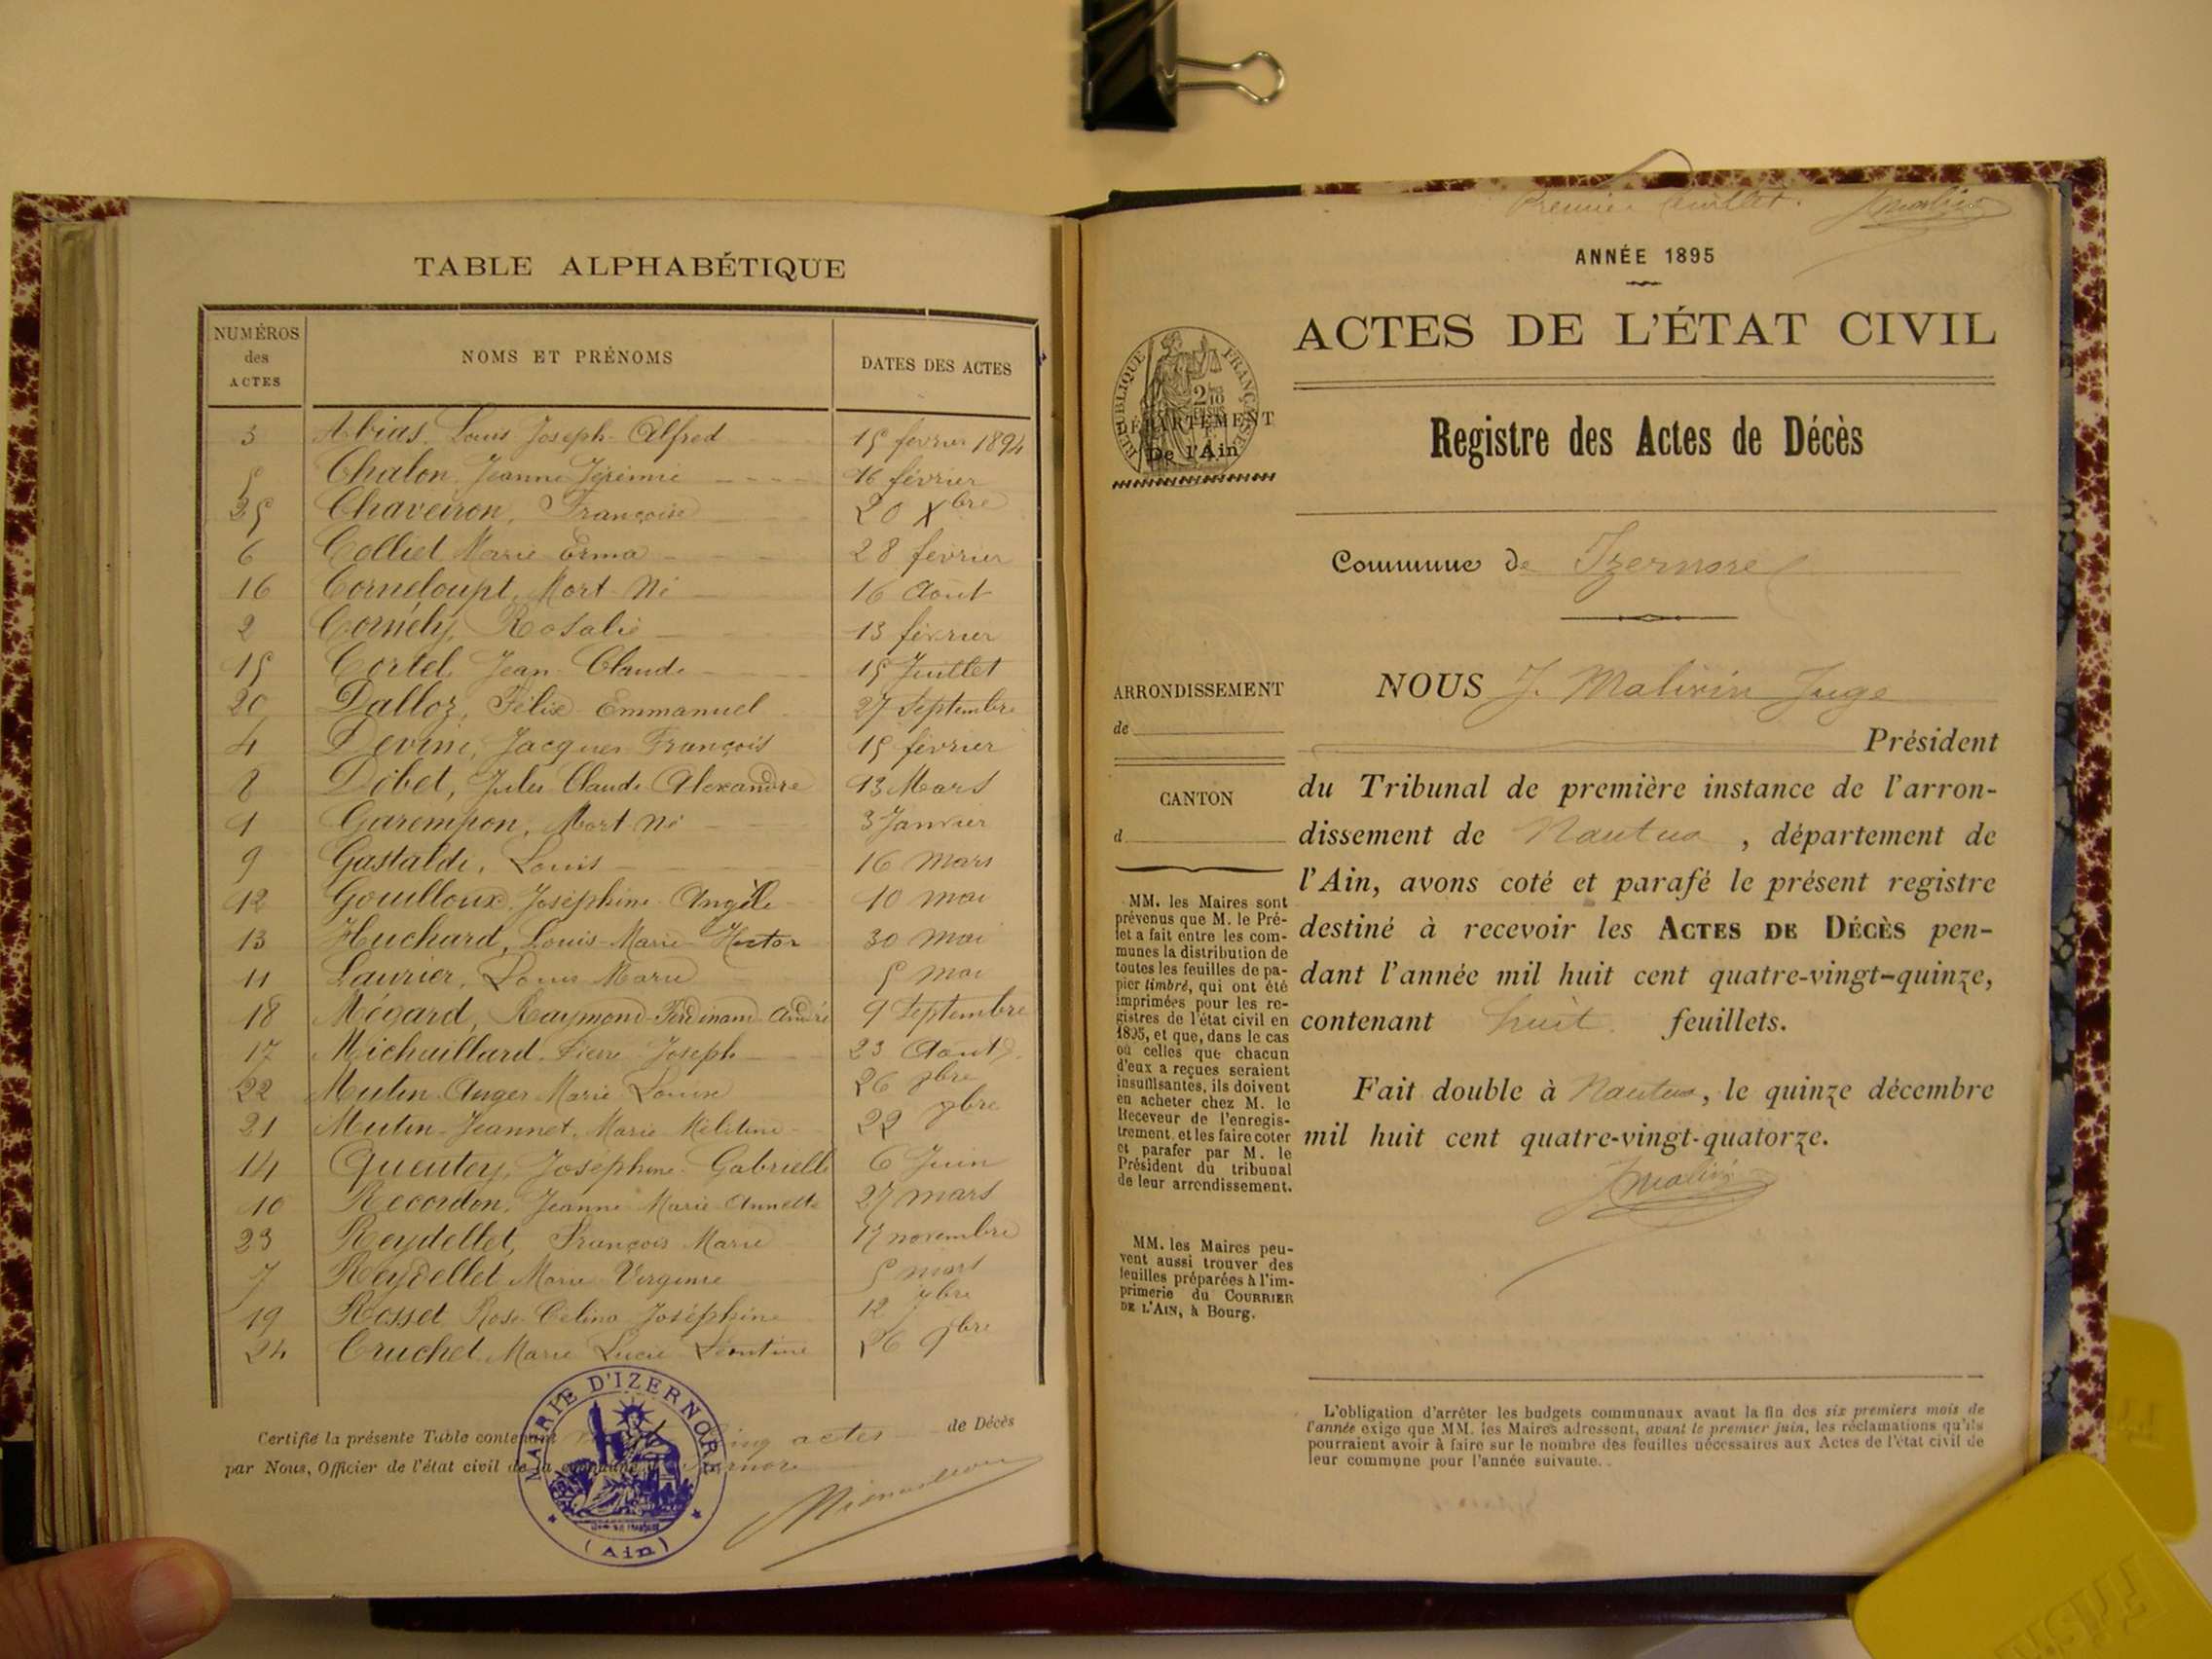 TABLE ALPHABÉTIQUE
NUMÉROS des ACTES NOMS ET PRÉNOMS DATES DES ACTES
3 Abias, Louis Joseph Alfred 15 février 1894
5 Chalon, Jeanne Jérémie 16 février
25 Chaveiron, Françoise 20 Xbre
6 Colliet Marie Erma 28 février
16 Corneloupt, Mort Né 16 Aout
2 Cornély, Rosalie 13 février
15 Cortel, Jean Claude 15 Juillet
20 Dalloz, Félix Emmanuel 27 Septembre
4 Jacques François 15 février
8 Dôbet, Jules Claude Alexandre 13 Mars
1 Garempon, Mort Né 3 Janvier
9 Gastaldi, Louis 16 Mars
12 Gouilloux, Joséphine Angèle 10 mai
13 Huchard, Louis Marie Hector 30 Mai
11 Laurier, Louis Marie 5 mai
18 Mégard, Raymond Ferdinand André 9 Septembre
17 Michaillard, Pierre Joseph 23 Aout
22 Mutin Auger Marie Louise 26 9bre
21 Mutin Jeannet, Marie 22 9bre
14 Joséphine Gabrielle 6 Juin
10 Recordon, Jeanne Marie Annette 27 mars
23 Reydellet, François Marie 17 novembre
7 Reydellet Marie Virginie 5 mars
19 Rosset, Rose Célina Joséphine 12
24 Cruchet Marie Lucie Léontine 26 9bre
Certifié la présente Table contenant cinq actes de Décès
par Nous, Officier de l'état civil de la commune d'Izernore
MAIRIE D'IZERNORE
(Ain)
Premier feuillet. JMalivin
ANNÉE 1895
ACTES DE L'ÉTAT CIVIL
RÉPUBLIQUE FRANÇAISE
DÉPARTEMENT
De l'Ain
Registre des Actes de Décès
Commune de Izernore
ARRONDISSEMENT
de
CANTON
d
MM. les Maires sont
prévenus que M. le Pré-
fet a fait entre les com-
munes la distribution de
toutes les feuilles de pa-
pier timbré, qui ont été
imprimées pour les re-
gistres de l'état civil en
1895, et que, dans le cas
où celles que chacun
d'eux a reçues seraient
insuffisantes, ils doivent
en acheter chez M. le
Receveur de l'enregis-
trement, et les faire coter
et parafer par M. le
Président du tribunal
de leur arrondissement.
MM. les Maires peu-
vent aussi trouver des
feuilles préparées à l'im-
primerie du COURRIER
DE L'AIN, à Bourg.
NOUS J. Malivin Juge
Président
du Tribunal de première instance de l'arron-
dissement de Nantua, département de
l'Ain, avons coté et parafé le présent registre
destiné à recevoir les ACTES DE DÉCÈS pen-
dant l'année mil huit cent quatre-vingt-quinze,
contenant huit feuillets.
Fait double à Nantua, le quinze décembre
mil huit cent quatre-vingt-quatorze.
JMalivin
L'obligation d'arrêter les budgets communaux avant la fin des six premiers mois de
l'année exige que MM. les Maires adressent, avant le premier juin, les réclamations qu'ils
pourraient avoir à faire sur le nombre des feuilles nécessaires aux Actes de l'état civil de
leur commune pour l'année suivante.